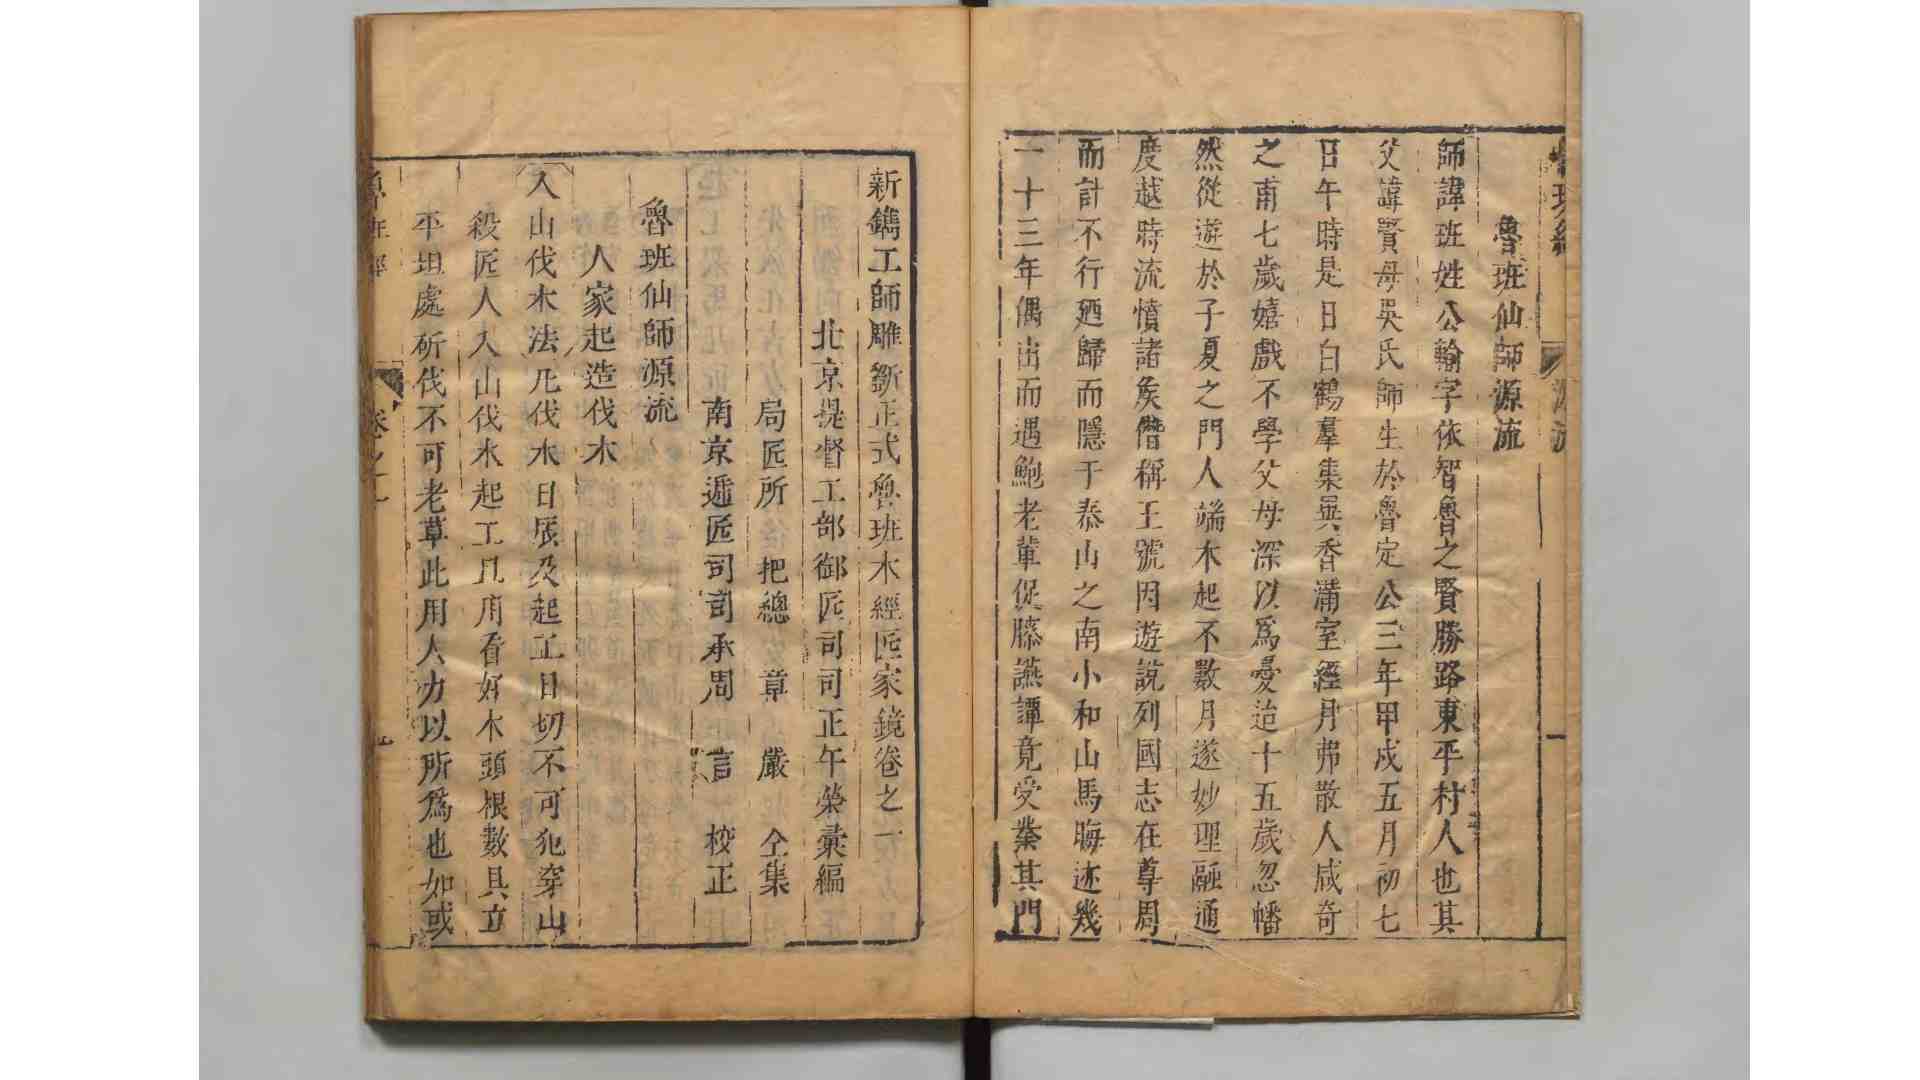 魯班仙師源流
師諱班姓公輸字依智魯之賢勝路東平村人也其
父諱賢母吳氏師生於魯定公三年甲戌五月初七
日午時是日白鶴羣集異香滿室經月弗散人咸奇
之甫七歲嬉戲不學父母深以爲憂迨十五歲忽幡
然從遊於子夏之門人端木起不數月遂妙理融通
度越時流憤諸矦僭稱王號因遊說列國志在尊周
而計不行廼歸而隱于泰山之南小和山焉晦迹幾
一十三年偶出而遇鮑老輩促膝讌譚竟受業其門
新鐫工師雕斵正式魯班木經匠家鏡卷之一
北京提督工部御匠司司正午榮彙編
局匠所 把總 章 嚴 仝集
南京遞匠司司承周 言 校正
魯班仙師源流
人家起造伐木
入山伐木法凡伐木日辰及起工日切不可犯穿山
殺匠人入山伐木起工且用看好木頭根數具立
平坦處斫伐不可老草此用人力以所爲也如或
魯班經
卷之一